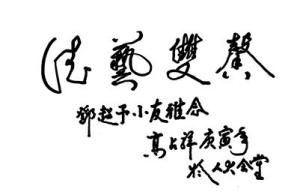 德藝雙馨
鄧超予小友雅念
高占祥庚寅年
於人大會堂